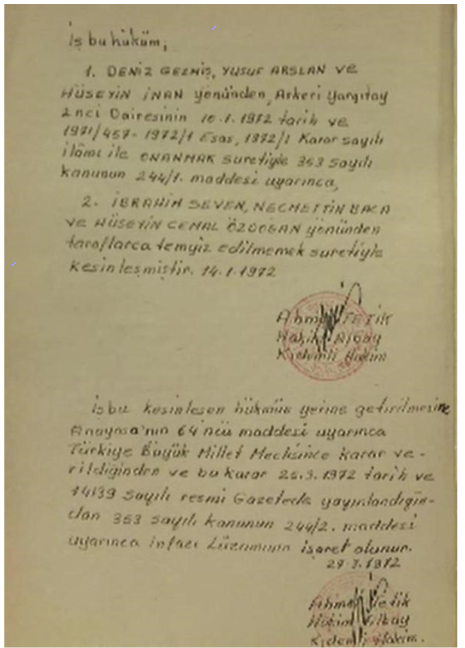 İş bu hüküm,
1. DENİZ GEZMİŞ, YUSUF ARSLAN ve
HÜSEYİN İNAN yönünden, Askeri Yargıtay
2 nci Dairesinin 10.1.1972 tarih ve
1971/457-1972/1 Esas, 1972/1 Karar sayılı
ilâmı ile ONANMAK suretiyle 353 sayılı
kanunun 244/1. maddesi uyarınca,
2. İBRAHİM SEVEN, NECMETTİN BACA
ve HÜSEYİN CEMAL ÖZDOĞAN yönünden
taraflarca temyiz edilmemek suretiyle
kesinleşmiştir. 14.1.1972
Ahmet TETİK
Hakim Albay
Kıdemli Hakim
İşbu kesinleşen hükmün yerine getirilmesine
Anayasa'nın 64 ncü maddesi uyarınca
Türkiye Büyük Millet Meclisince karar ve-
rildiğinden ve bu karar 25.3.1972 tarih ve
14139 sayılı resmi Gazetede yayınlandığın-
dan 353 sayılı kanunun 244/2. maddesi
uyarınca infazı lüzumuna işaret olunur.
29.3.1972
Ahmet Tetik
Hakim Albay
Kıdemli Hakim.